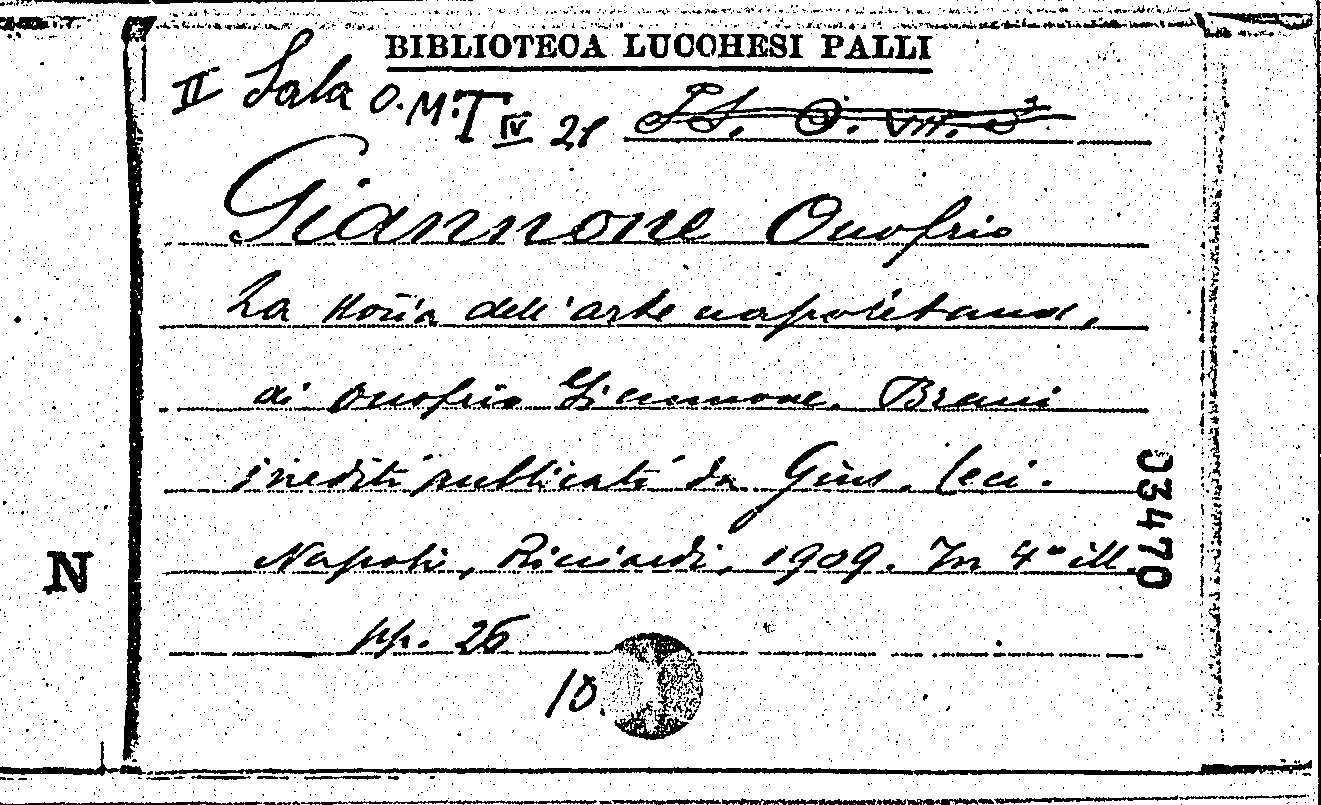 BIBLIOTECA LUCCHESI PALLI
II Sala O. M. T IV 28
Giannone Onofrio
La storia dell'arte napoletana,
di Onofrio Giannone. Brani
inediti publicati da Gius. Ceci.
Napoli, Ricciardi, 1909. In 4° ill.
pp. 26
10.
03470
N